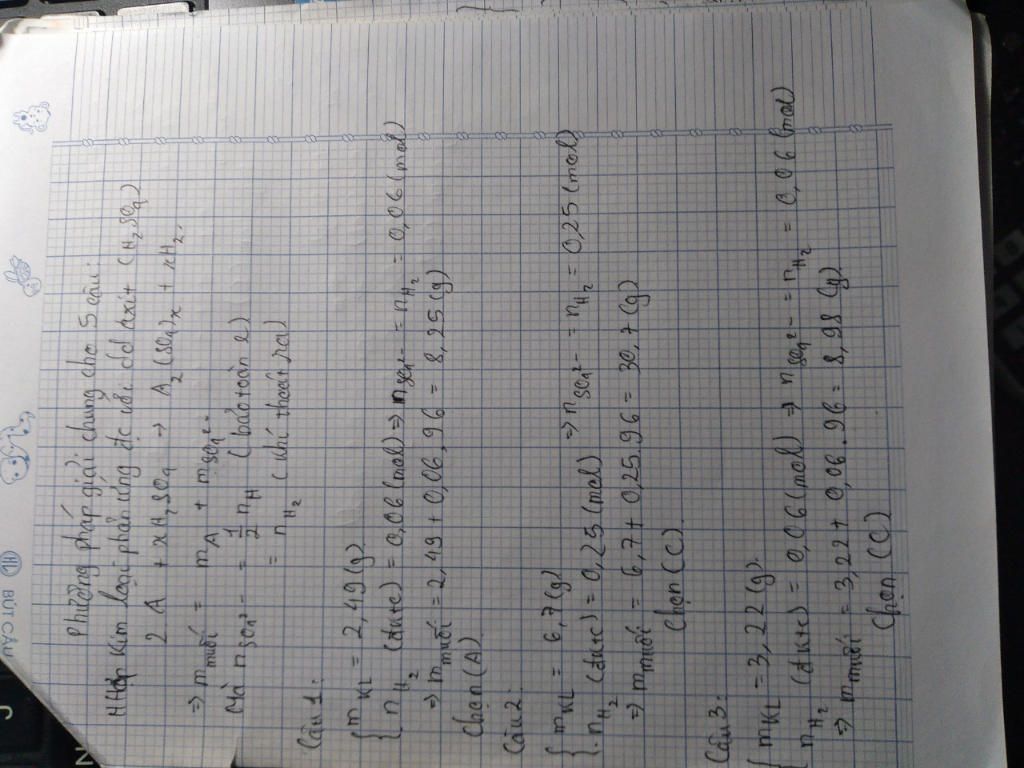 HL BÚT CÂU
Phương pháp giải chung cho 5 câu:
Kim loại phản ứng đc với dd axit (H2SO4)
2 A + xH2SO4 → A2(SO4)x + xH2.
⇒ m muối = mA + mSO4²⁻
Mà nSO4²⁻ = 1/2 nH (bảo toàn e)
= nH2 (khí thoát ra)
Câu 1:
{ mKL = 2,49 (g)
nH2 (đktc) = 0,06 (mol) ⇒ nSO4²⁻ = nH2 = 0,06 (mol)
⇒ m muối = 2,49 + 0,06.96 = 8,25 (g)
Chọn (A)
Câu 2:
{ mKL = 6,7 (g)
nH2 (đktc) = 0,25 (mol) ⇒ nSO4²⁻ = nH2 = 0,25 (mol)
⇒ m muối = 6,7 + 0,25.96 = 30,7 (g)
Chọn (C)
Câu 3:
{ mKL = 3,22 (g).
nH2 (đktc) = 0,06 (mol) ⇒ nSO4²⁻ = nH2 = 0,06 (mol)
⇒ m muối = 3,22 + 0,06.96 = 8,98 (g)
Chọn (C)